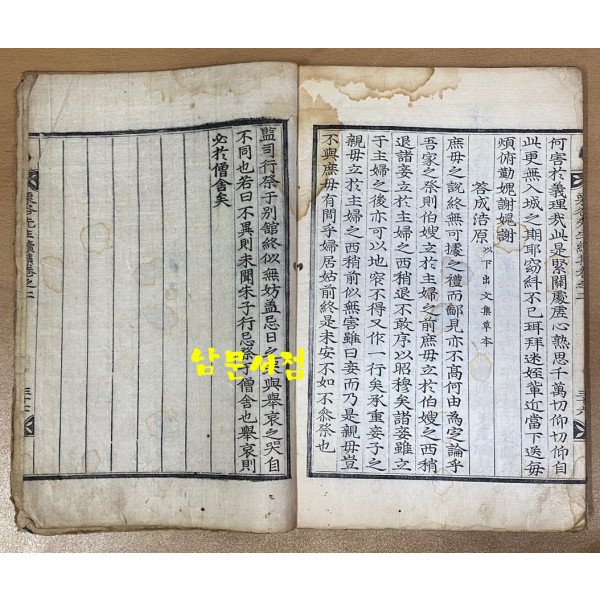 何害於義理哉此是緊關處虛心熟思千萬切仰切仰自
此更無入城之期耶窃紏不已珥拜迷姪輩近當下送毋
煩俯勤愧謝媿謝
答成浩原 以下出文集草本
庶母之說終無可據之禮而鄙見亦不高何由為定論乎
吾家之祭則伯嫂立於主婦之前庶母立於伯嫂之西稍
退諸妾立於主婦之西稍退不敢序以昭穆矣諸妾雖立
于主婦之後亦可以地窄不得又作一行矣承重妾子之
親母立於主婦之西稍前似無害雖曰妾而乃是親母豈
不與庶母有間乎婦居姑前終是未安不如不叅祭也
栗谷先生續集卷之二
三十六
監司行祭于別館終似無妨盖忌日之
與舉哀之哭自
不同也若曰不異則未聞朱子行忌祭于僧舍也舉哀則
必於僧舍矣
栗谷先生續集卷之二
三十七
남문서점